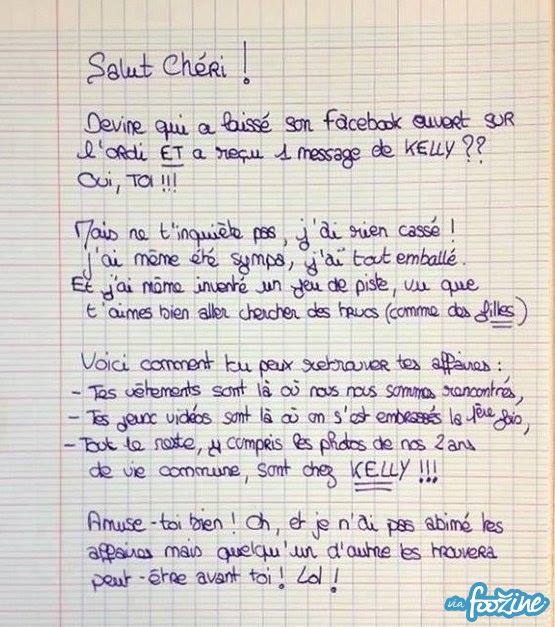 Salut Chéri !
Devine qui a laissé son facebook ouvert sur
l'ordi ET a reçu 1 message de KELLY ??
Oui, TOI !!!
Mais ne t'inquiète pas, j'ai rien cassé !
j'ai même été sympa, j'ai tout emballé.
Et j'ai même inventé un jeu de piste, vu que
t'aimes bien aller chercher des trucs (comme des filles)
Voici comment tu peux retrouver tes affaires :
- Tes vêtements sont là où nous nous sommes rencontrés,
- Tes jeux vidéos sont là où on s'est embrassés la 1ère fois,
- Tout le reste, y compris les photos de nos 2 ans
de vie commune, sont chez KELLY !!!
Amuse-toi bien ! Oh, et je n'ai pas abimé les
affaires mais quelqu'un d'autre les trouvera
peut-être avant toi ! Lol !
via foozine